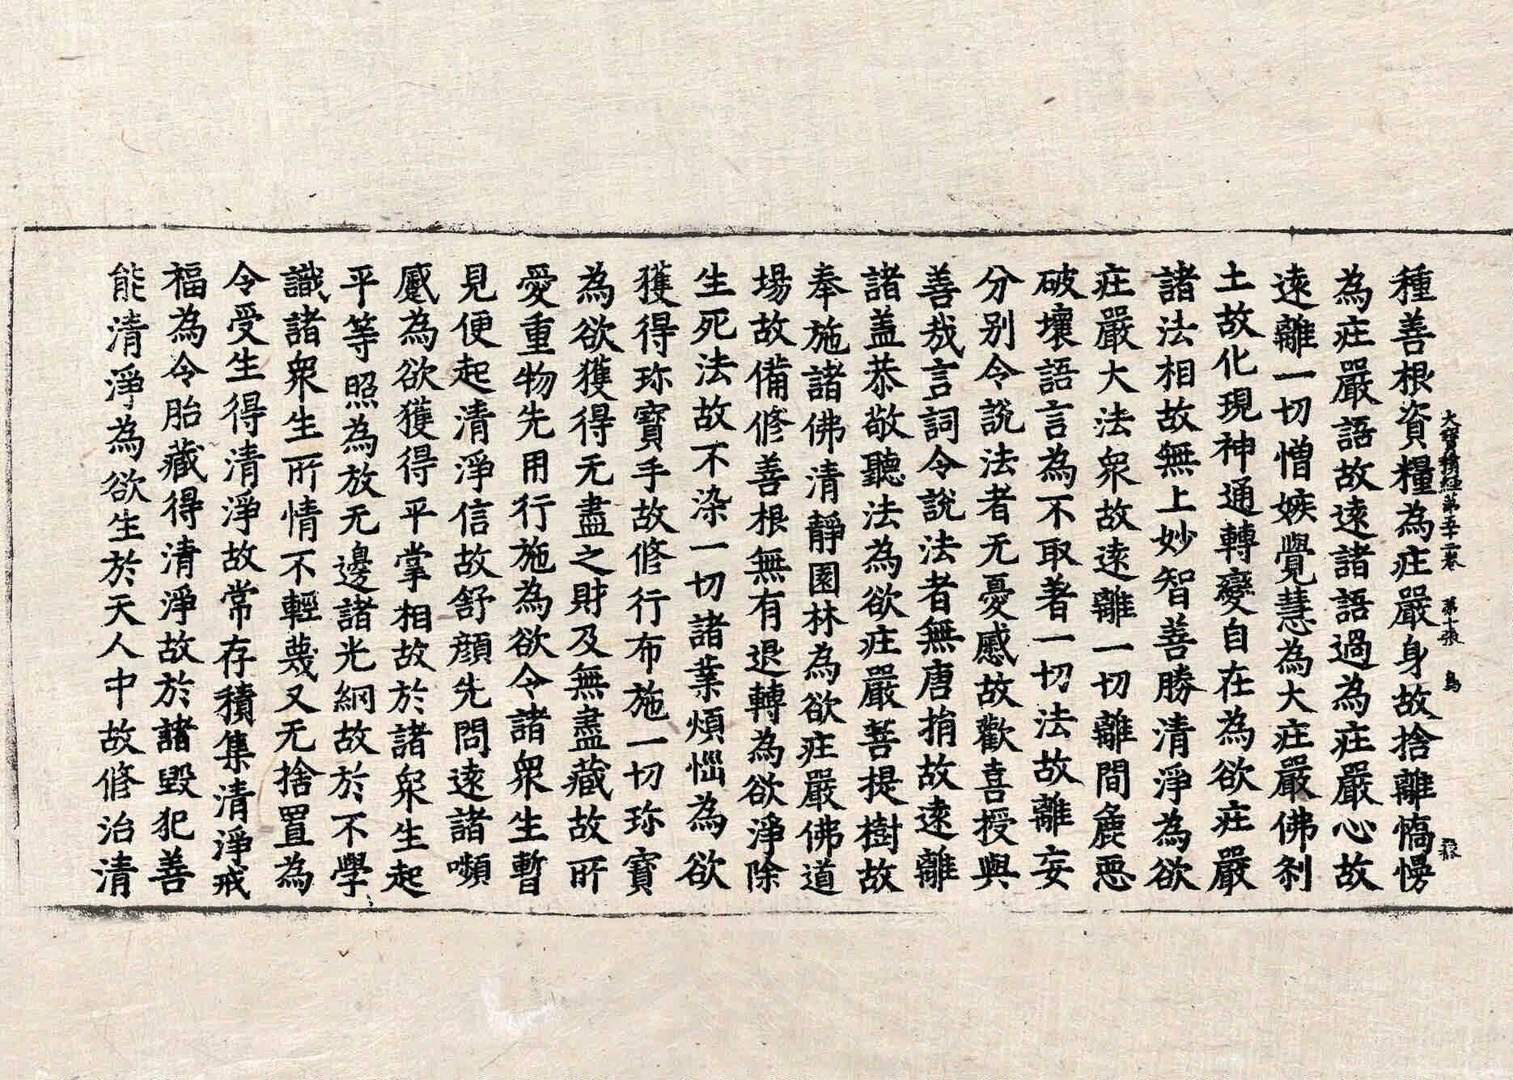 大寶積經第五十一卷 第十張 鳥
種善根資糧為庄嚴身故捨離憍慢
為庄嚴語故遠諸語過為庄嚴心故
遠離一切憎嫉覺慧為大庄嚴佛刹
土故化現神通轉變自在為欲庄嚴
諸法相故無上妙智善勝清淨為欲
庄嚴大法衆故遠離一切離間麁惡
破壞語言為不取著一切法故離妄
分别令說法者无憂慼故歡喜授與
善㢤言詞令說法者無唐捐故遠離
諸盖恭敬聽法為欲庄嚴菩提樹故
奉施諸佛清靜園林為欲庄嚴佛道
場故備修善根無有退轉為欲淨除
生死法故不染一切諸業煩惱為欲
獲得珎寶手故修行布施一切珎寶
為欲獲得无盡之財及無盡藏故所
愛重物先用行施為欲令諸衆生暫
見便起清淨信故舒顏先問遠諸嚬
蹙為欲獲得平掌相故於諸衆生起
平等照為放无邊諸光網故於不學
識諸衆生所情不輕蔑又无捨置為
令受生得清淨故常存積集清淨戒
福為令胎藏得清淨故於諸毀犯善
能清淨為欲生於天人中故修治清